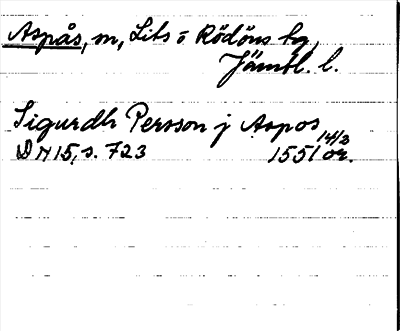 Aspås, m, Lits o Rödöns hg,
Jämtl. l.
Sigurdh Persson j Aspos
DN 15, s. 723 1551 14/3 or.